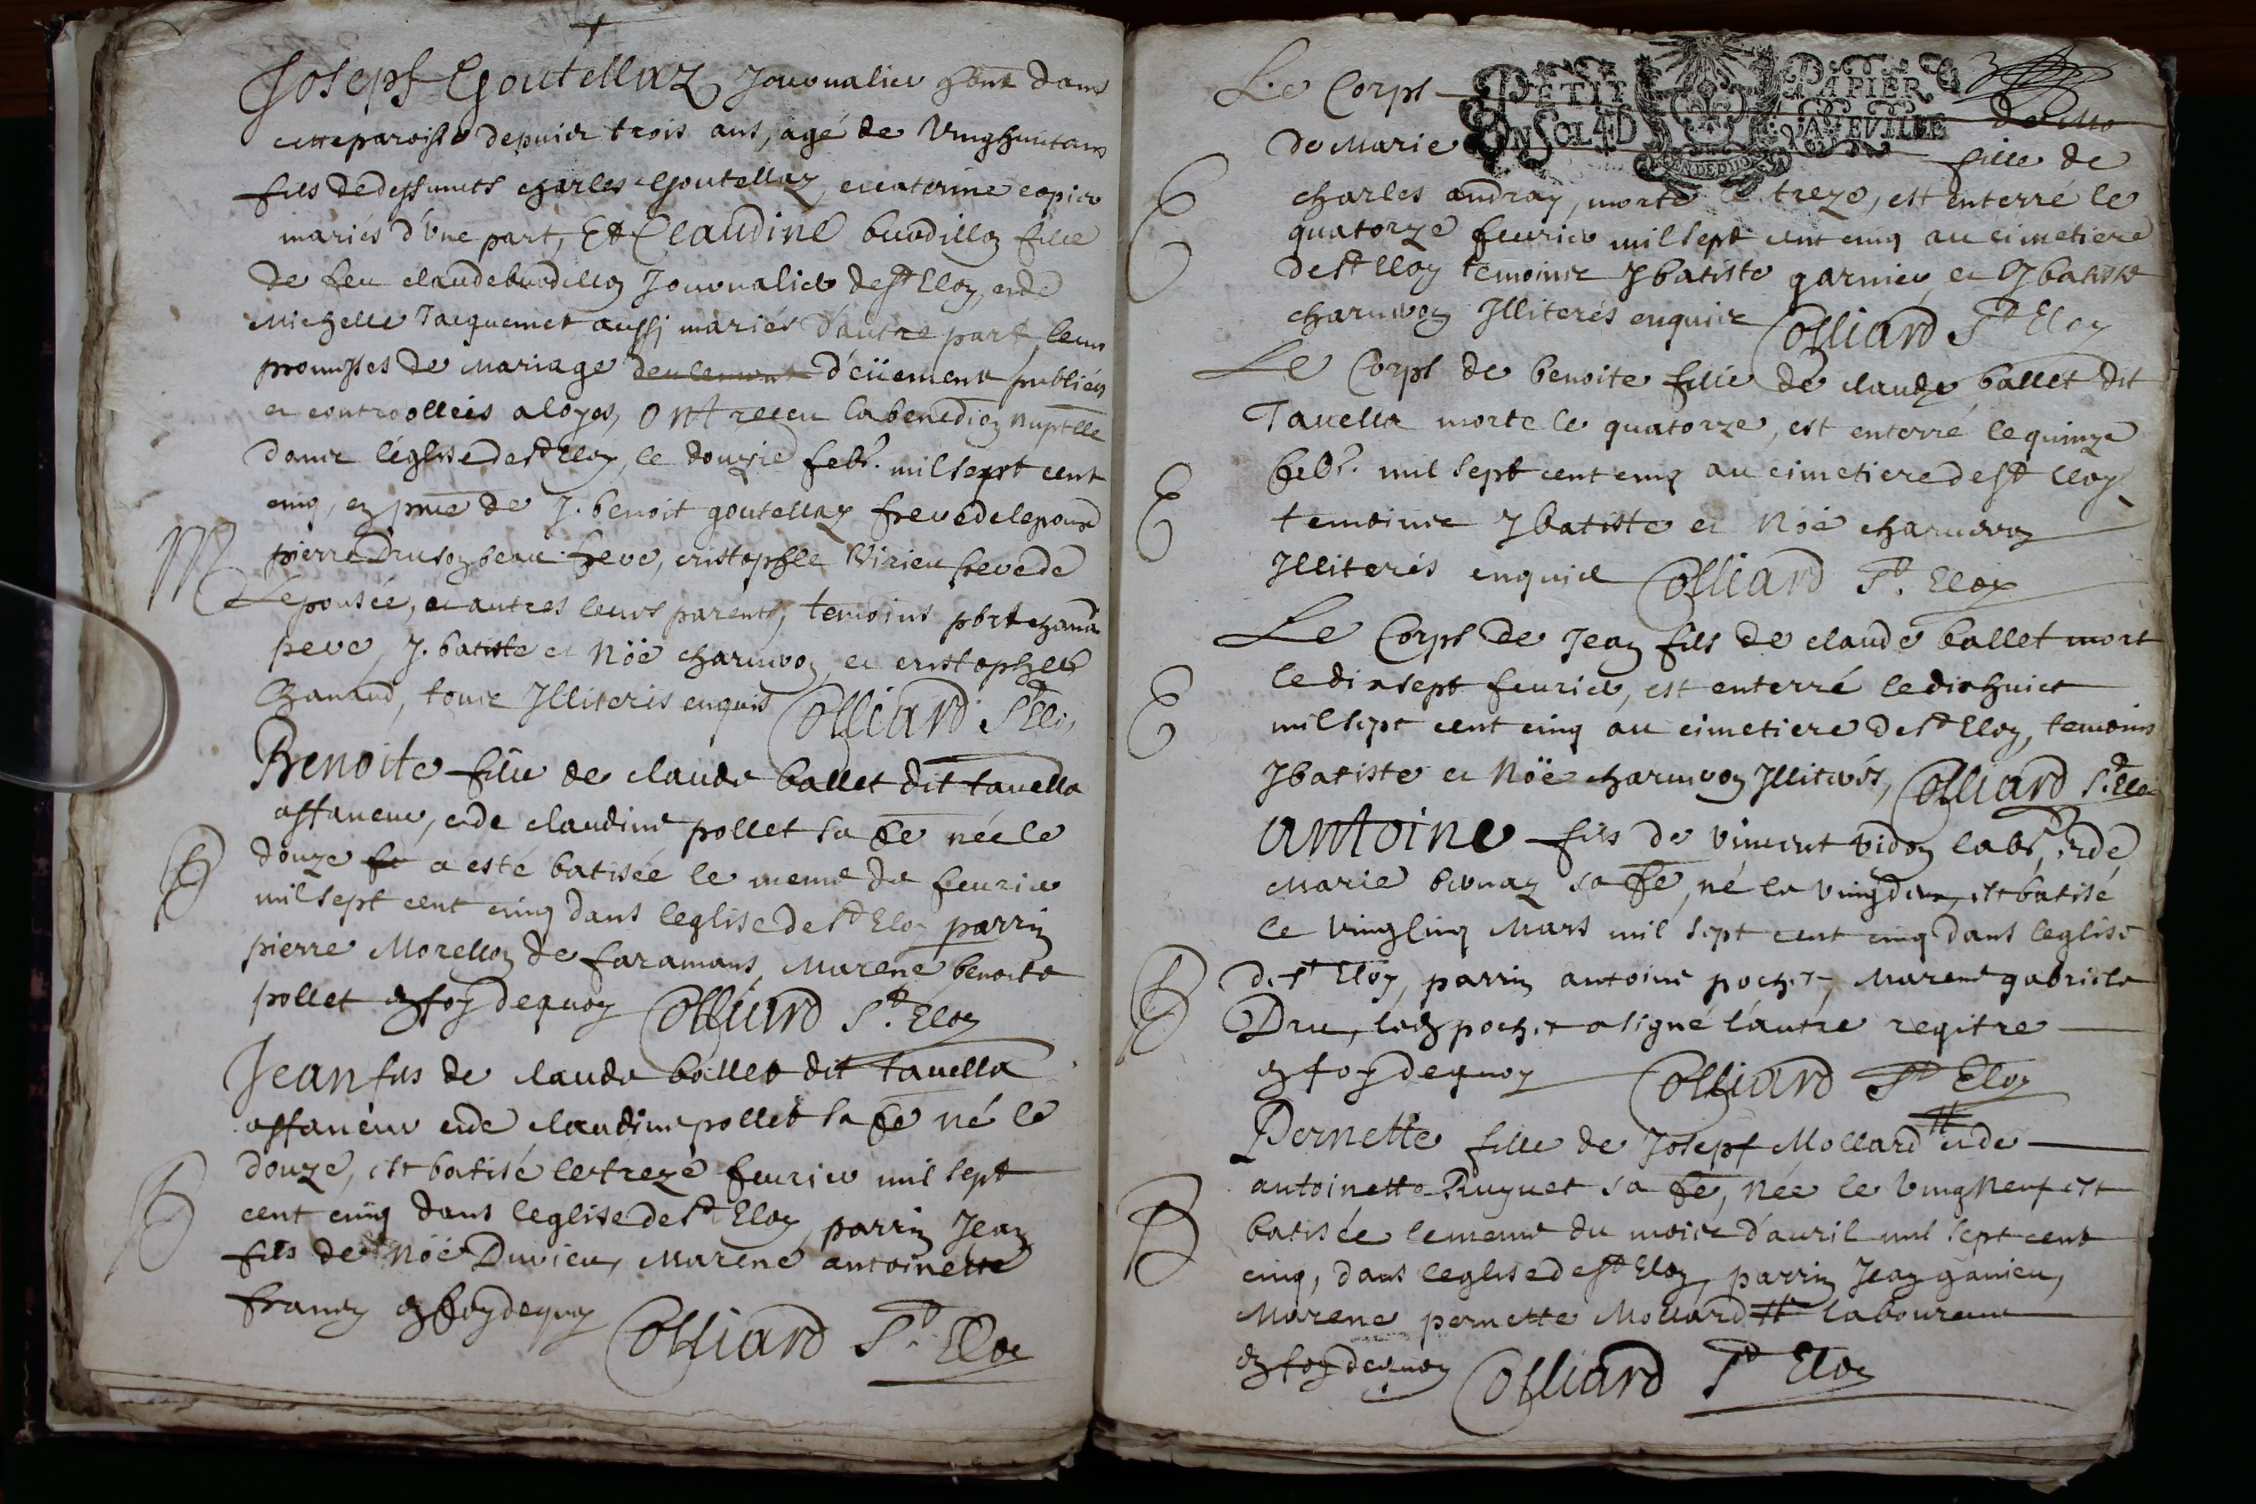 Joseph Goutellaz Journalier hbnt dans
cette paroisse depuis trois ans, agé de vinghuit ans
fils de deffuncts charles Goutellaz, et caterine copier
mariés d'une part, Et Claudine buodilloz fille
de feu claude buodilloz Journalier de St Eloy, et de
Michelle Jacquemet aussi mariés d'autre part, leurs
promesses de Mariage deulement d'eüement publiées
et controollées a loyes, ont receu la benedion nuptlle
dans léglise de St Eloy, le douzie febr. mil sept cent
cinq, en pnce de J. benoit goutellaz frere de lepoux
pierre Druson beau frere, cristophle Virieu frere de
Lépousée, et autres leurs parents, temoins pbrt chanā
pere, J. batiste et Nöé charurvoz, et cristophle
Chanaud, tous Illiteris enquis Colliard St Eloi
M
Benoite fille de claude ballet dit tauella
affaneur, et de claudine pollet sa fe née le
douze fe a esté batisée le meme de feurier
mil sept cent cinq dans leglise de St Eloy parrin
pierre Morelloz de faramans, Marene benoite
pollet en foy de quoy Colliard St. Eloy
B
Jean fils de claude ballet dit tauella
affaneur et de claudine pollet sa fe né le
douze, est batisé le treze feurier mil sept
cent cinq dans leglise de St Eloy, parrin Jean
fils de Nöé Durieu, Marene antoinette
francy en foy de quoy Colliard St. Eloy
B
Le Corps
PETIT PAPIER
UN SOL 4 D LA FEVILLE
de Marie fille de
charles andray, morte le treze, est enterré le
quatorze feurier mil sept cent cinq au cimetiere
de St Eloy temoins Jbatiste garnier, et Jbatiste
charurvoz Illiterés enquis Colliard St Eloy
E
Le Corps de benoite fille de claude ballet dit
Tauella morte le quatorze, est enterré le quinze
febr. mil sept cent cinq au cimetiere de St Eloy
temoins Jbatiste et Nöé charurvoz
Illiterés enquis Colliard St. Eloy
E
Le Corps de Jean fils de claude ballet mort
le dixsept feurier, est enterré le dixhuict
mil sept cent cinq au cimetiere de St Eloy, temoins
Jbatiste et Nöé charurvoz Illiterés, Colliard St. Eloi
E
Antoine fils de vincent vidon labr, et de
Marie brunaz sa fe, né le vingdeux, est batisé
le vingcinq Mars mil sept cent cinq dans leglise
de St Eloy, parrin antoine pochet, Marene gabriele
Dru, led pochet a signé lautre regitre
en foy de quoy Colliard St Eloy
B
Pernette fille de Joseph Mollard # et de
antoinette Ruguet sa fe, née le vingneuf est
batisée le meme du mois d'auril mil sept cent
cinq, dans leglise de St Eloy, parrin Jean ganieu,
Marene pernette Mollard # laboureur
en foy de quoy Colliard St Eloy
B